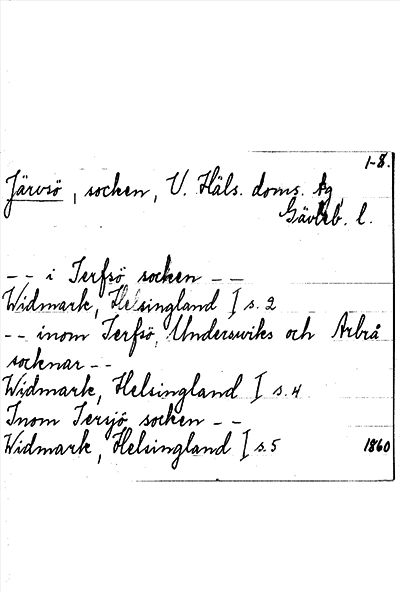 1-8.
Järvsö, socken, V. Häls. doms. tg
Gävleb. l.
-- i Jerfsö socken --
Widmark, Helsingland I s. 2
-- inom Jerfsö, Underswiks och Arbrå
socknar --
Widmark, Helsingland I s. 4
Inom Jersjö socken --
Widmark, Helsingland I s. 5
1860